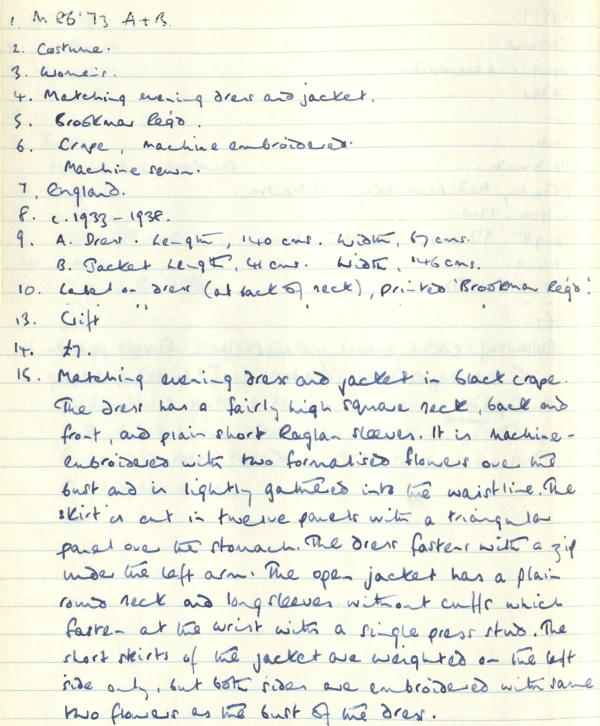 1. M 86'73 A+B.
2. Costume.
3. Women's.
4. Matching evening dress and jacket.
5. Brookmar Reg'd.
6. Crape, machine embroidered.
Machine sewn.
7. England.
8. c. 1933 - 1938.
9. A. Dress. Length, 140 cms. Width, 67 cms.
B. Jacket Length, 41 cms. Width, 146 cms.
10. Label on dress (at back of neck), printed "Brookmar Reg'd."
13. Gift
14. £7.
15. Matching evening dress and jacket in black crape.
The dress has a fairly high square neck, back and
front, and plain short Raglan sleeves. It is machine-
embroidered with two formalised flowers over the
bust and is lightly gathered into the waistline. The
skirt is cut in twelve panels with a triangular
panel over the stomach. The dress fastens with a zip
under the left arm. The open jacket has a plain
round neck and long sleeves without cuffs which
fasten at the wrist with a single press stud. The
short skirts of the jacket are weighted on the left
side only, but both sides are embroidered with same
two flowers as the bust of the dress.